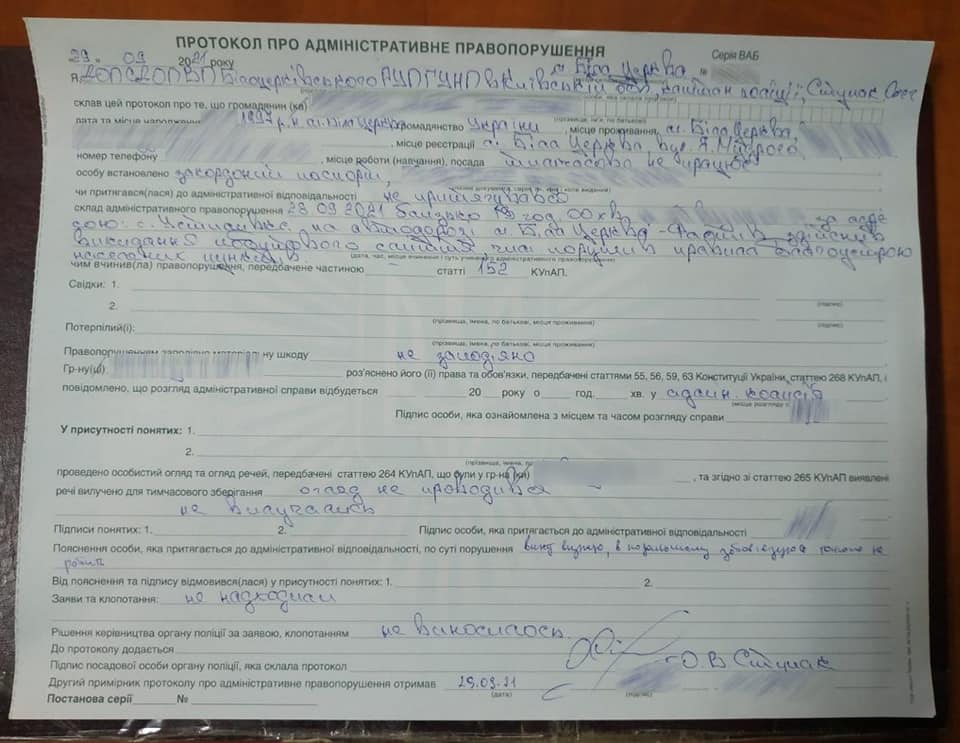 ПРОТОКОЛ ПРО АДМІНІСТРАТИВНЕ ПРАВОПОРУШЕННЯ
Серія ВАБ
29 09 2021 року м. Біла Церква №
Я, ДОП СДОП ВП Білоцерківського РУП ГУНП в Київській обл. капітан поліції, Ступак
склав цей протокол про те, що громадянин (ка)
дата та місце народження 1997 р.н. м. Біла Церква громадянство України, місце проживання, м. Біла Церква,
, місце реєстрації м. Біла Церква, вул. Я. Мудрого
номер телефону , місце роботи (навчання), посада тимчасово не працює
особу встановлено закордоний паспорт,
чи притягався(лася) до адміністративної відповідальності не притягувався
склад адміністративного правопорушення 28.09.2021 близько год. 00 хв. за адре
сою: с. Устимівка, на автодорозі м. Біла Церква - Фастів здійснив
викидання побутового сміття чим порушив правила благоустрою
населених пунктів
(дата, час, місце вчинення і суть учиненого адміністративного правопорушення)
чим вчинив(ла) правопорушення, передбачене частиною - статті 152 КУпАП.
Свідки: 1.
(підпис)
2.
(прізвище, імена, по батькові, місце проживання) (підпис)
Потерпілий(і):
(прізвища, імена, по батькові, місце проживання)
Правопорушенням заподіяно матеріальну шкоду не заподіяно
Гр-ну(ці) роз'яснено його (її) права та обов'язки, передбачені статтями 55, 56, 59, 63 Конституції України, статтею 268 КУпАП, і
повідомлено, що розгляд адміністративної справи відбудеться 20 року о год. хв. у адмін. комісія
(місце розгляду)
Підпис особи, яка ознайомлена з місцем та часом розгляду справи
У присутності понятих: 1.
2.
проведено особистий огляд та огляд речей, передбачені статтею 264 КУпАП, що були у гр-на (ки) , та згідно зі статтею 265 КУпАП виявлені
речі вилучено для тимчасового зберігання огляд не проводився
не вилучались
Підписи понятих: 1. 2. Підпис особи, яка притягається до адміністративної відповідальності
Пояснення особи, яка притягається до адміністративної відповідальності, по суті порушення вину визнаю, в подальшому зобов'язуюся такого не
робити
Від пояснення та підпису відмовився(лася) у присутності понятих: 1. 2.
Заяви та клопотання: не надходили
Рішення керівництва органу поліції за заявою, клопотанням не виносилось
До протоколу додається
Підпис посадової особи органу поліції, яка склала протокол О.В Ступак
Другий примірник протоколу про адміністративне правопорушення отримав 29.09.21
(дата) (підпис)
Постанова серії №